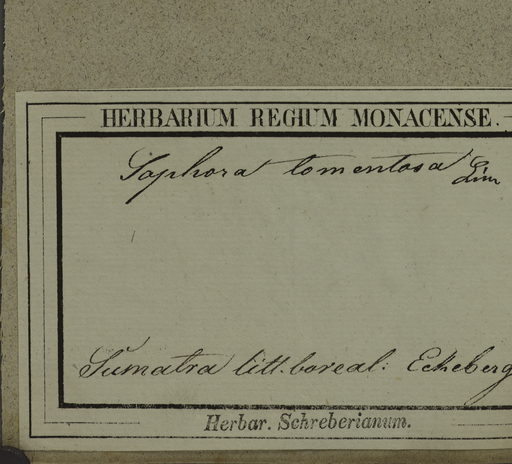 HERBARIUM REGIUM MONACENSE.
Sophora tomentosa Lin
Sumatra litt. boreal: Eckeberg
Herbar. Schreberianum.